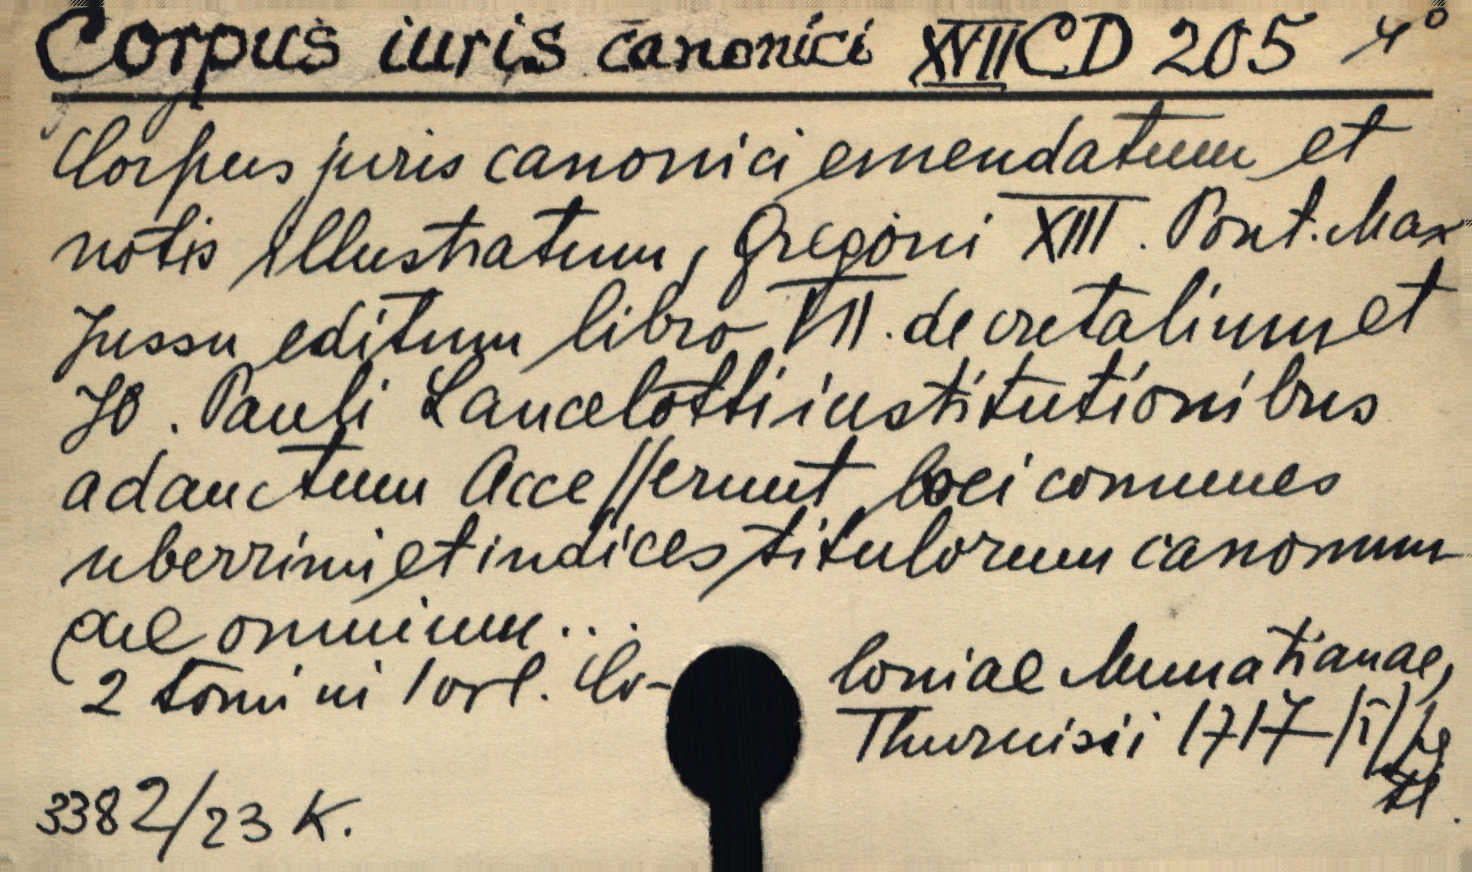 Corpus iuris canonici XVII CD 205 4°
Corpus juris canonici emendatum et
notis illustratum, Gregorii XIII. Pont. Max
Jussu editum libro VII. decretalium et
Jo. Pauli Lancelotti institutionibus
adauctum Accesserunt loci communes
uberrimi et indices titulorum canonum
que omnium...
2 tomi in 1 vol. Co-
loniae Munatianae,
Thurnisii 1717
3382/23 K.